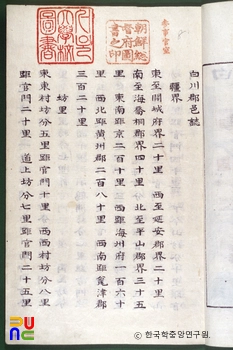 白川郡邑誌
疆界
東至開城府界二十里 西至延安郡界二十里
南至海
郡界四十里 北至平山郡界三十五
里 東南距京二百十里 西距海州府一百六十
里 西北距黃州郡二百八十里 西南距瓮津郡
三百二十里
坊里
東東村坊分五里距官門十里 西西村坊分八里
距官門二十里 道上坊分七里距官門二十五里
朝鮮總督府圖書之印
參事官室
한국학중앙연구원